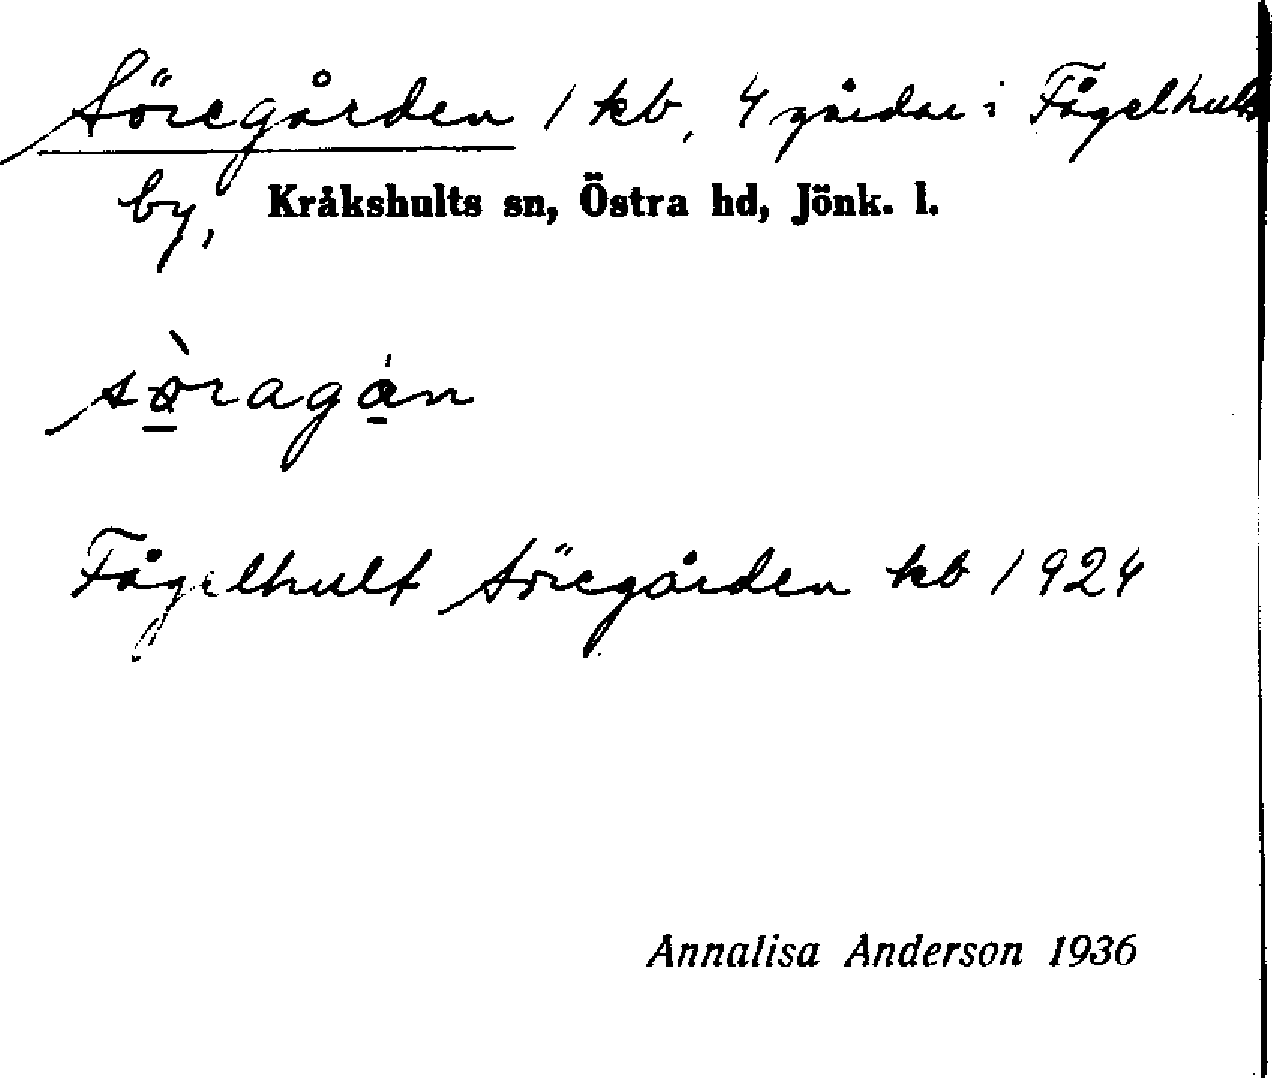 Söregården / kb, 4 gårdar i Fågelhults
by, Kråkshults sn, Östra hd, Jönk. l.
sø̠̀ragá̠n
Fågelhult Söregården kb 1924
Annalisa Anderson 1936